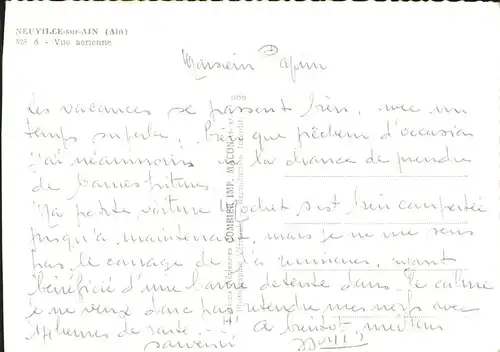 NEUVILLE-sur-AIN (Ain)
525 6 - Vue aérienne
Monsieur
Les vacances se passent bien, avec un
temps superbe. Bien que pêcheur d'occasion
j'ai néanmoins la chance de prendre
de bonnes fritures
Ma petite voiture s'est bien comportée
jusqu'à maintenant, mais je ne me sens
pas le courage de
bénéficié d'une bonne détente dans le calme
je ne veux donc pas retendre mes nerfs avec
14 heures de route. A bientôt,
COMBIER IMP. MACON